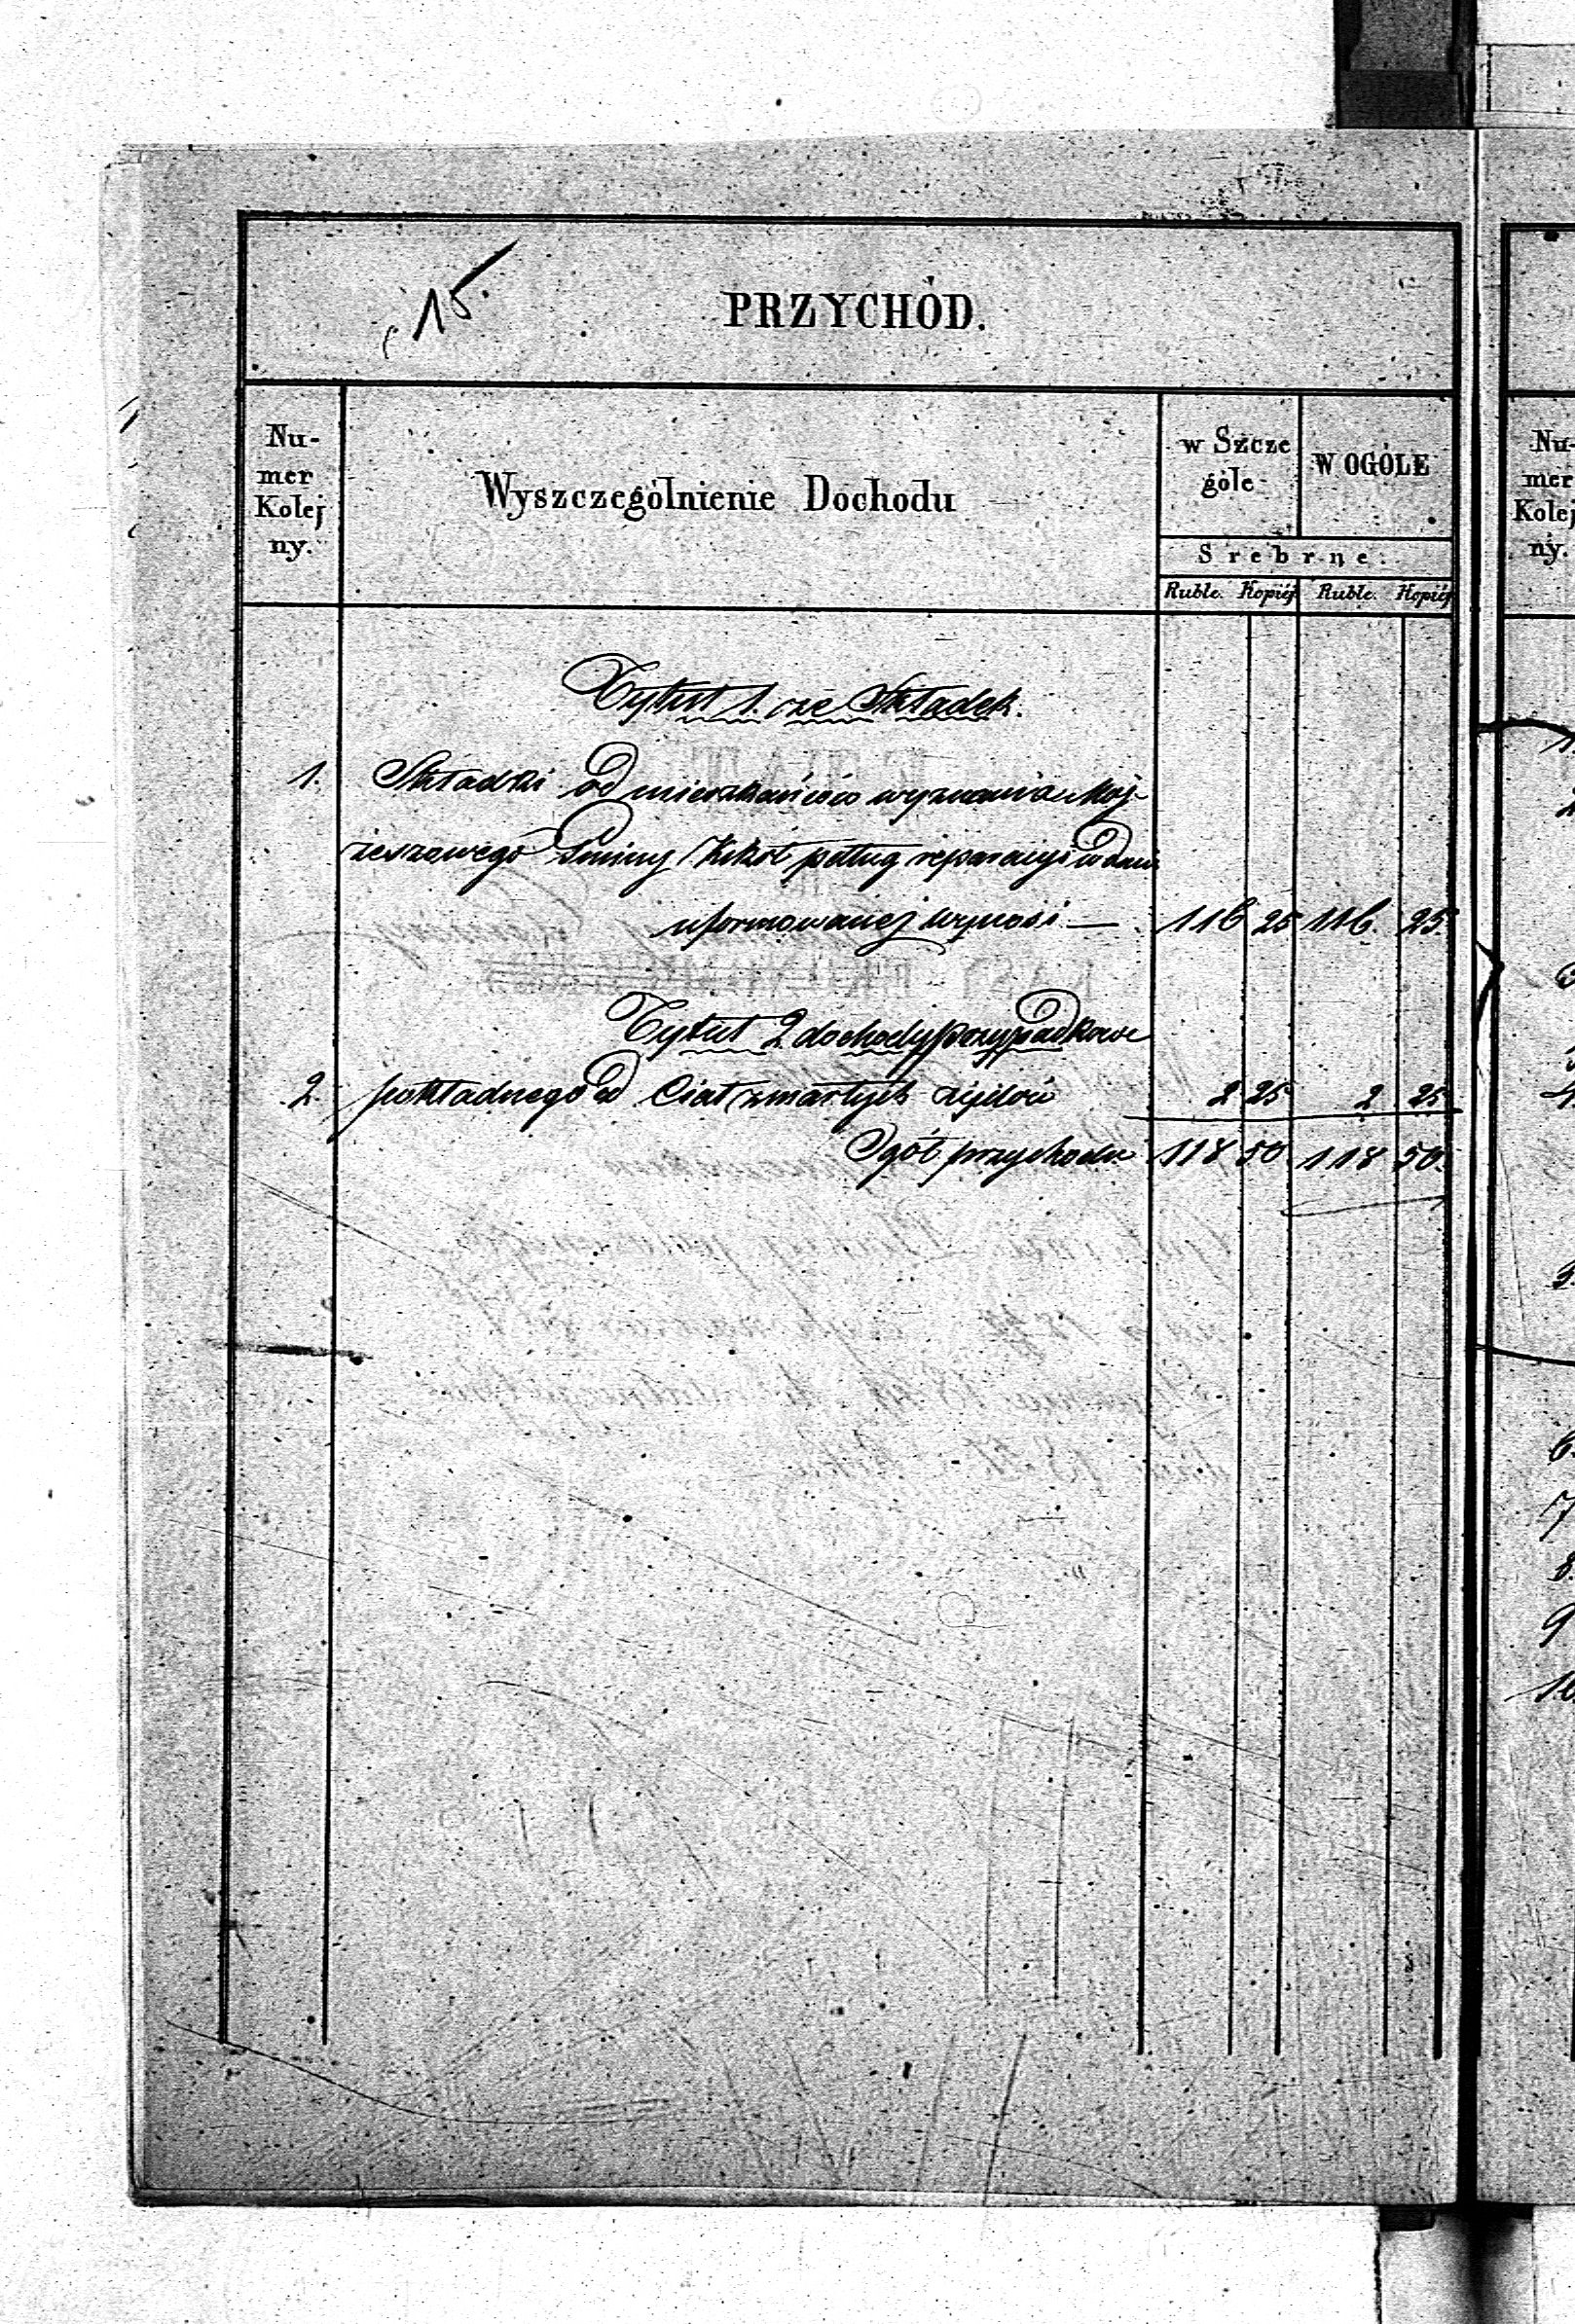 15.
PRZYCHÓD.
Nu-
mer
Kolej
ny.
Wyszczególnienie Dochodu
w Szcze
góle
W OGÓLE
Srebrne.
Ruble. Kopiéj Ruble. Kopiéj
Tytuł 1. ze Składek.
1. Składki od mieszkańców wyznania Moj-
żeszowego Gminy Kikoł podług reparacyi
uformowanej wynosi — 116 25 116. 25.
Tytuł 2 dochody przypadkowe
2. pokładnego od Ciał zmarłych żydów 2 25 2 25
Ogół przychodu 118 50 118 50.
Nu-
mer
Kolej
ny.
4.
6.
7
8.
9
10